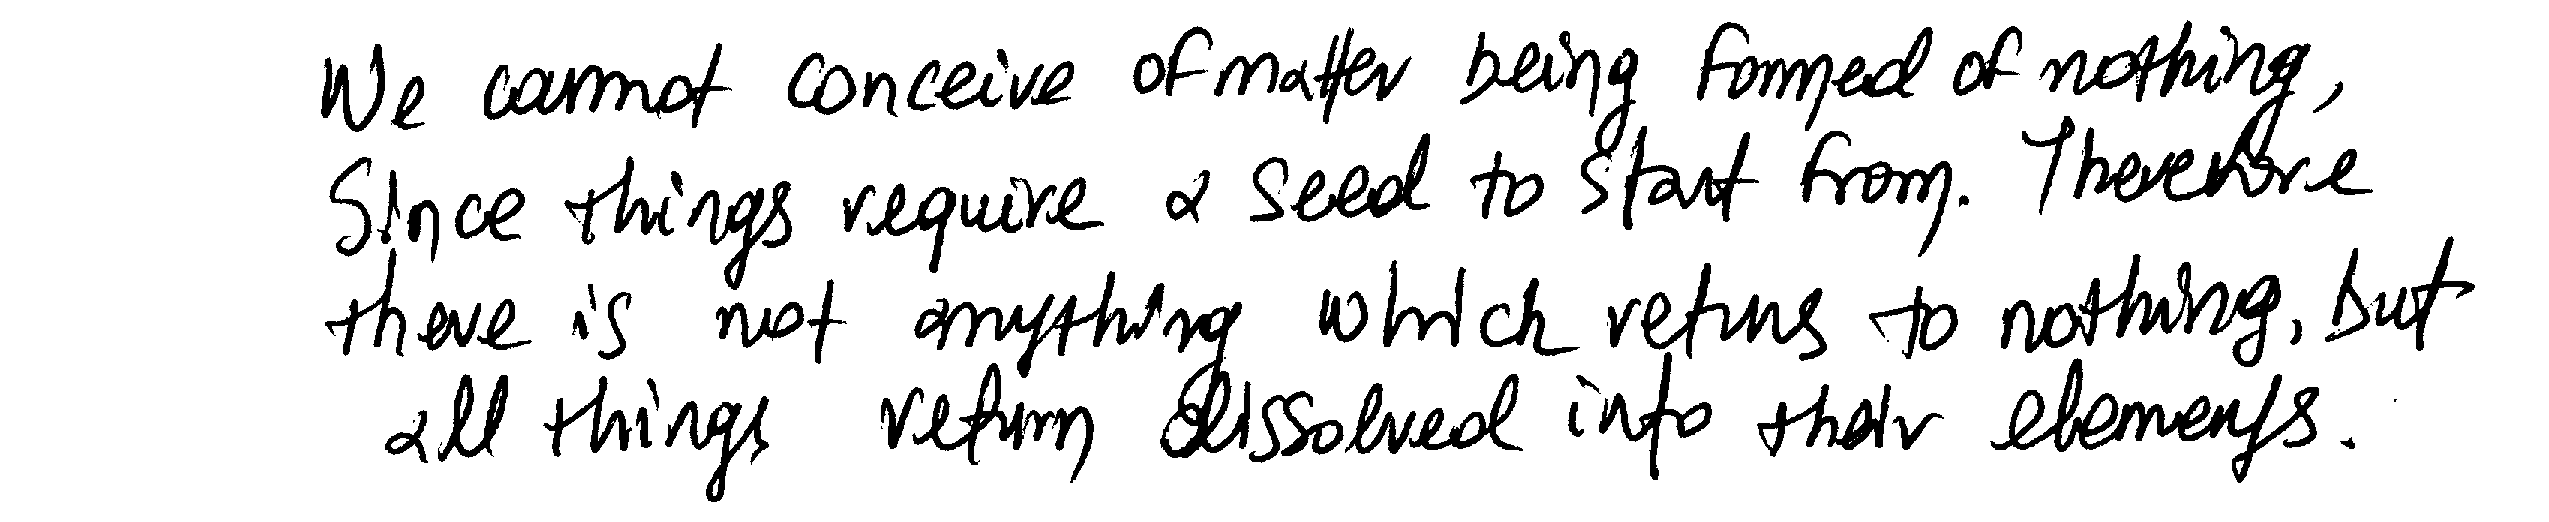 We cannot conceive of matter being formed of nothing,
Since things require a seed to start from. Therefore
there is not anything which returns to nothing, but
all things return dissolved into their elements.